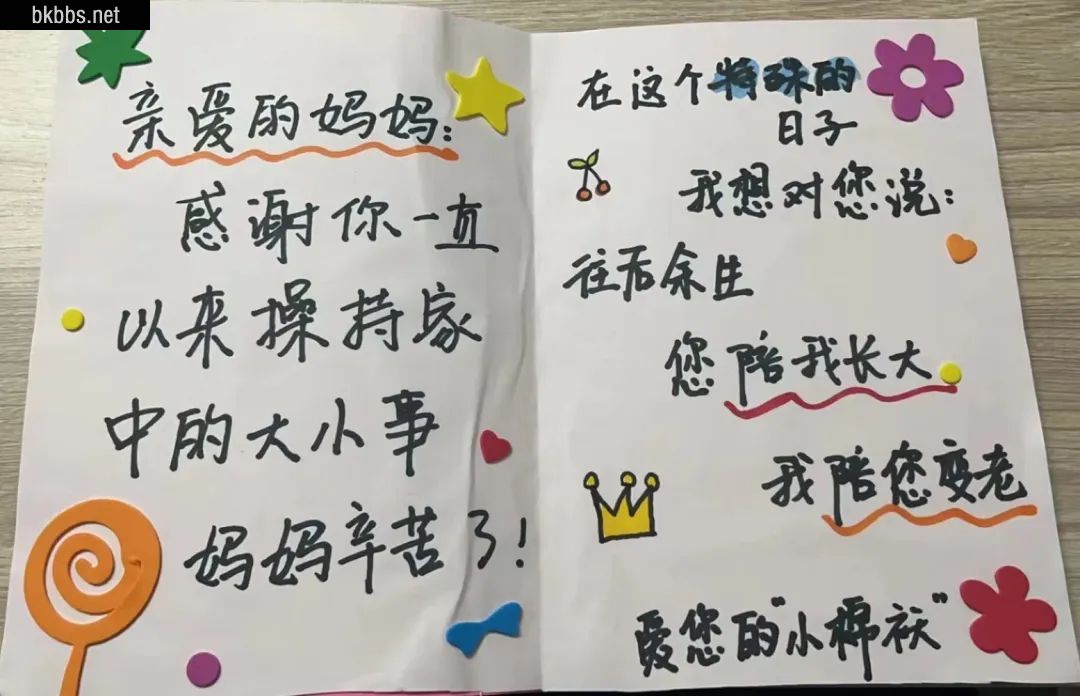 bkbbs.net
亲爱的妈妈:
感谢你一直
以来操持家
中的大小事
妈妈辛苦了!
在这个特殊的
日子
我想对您说:
往后余生
您陪我长大
我陪您变老
爱您的"小棉袄"